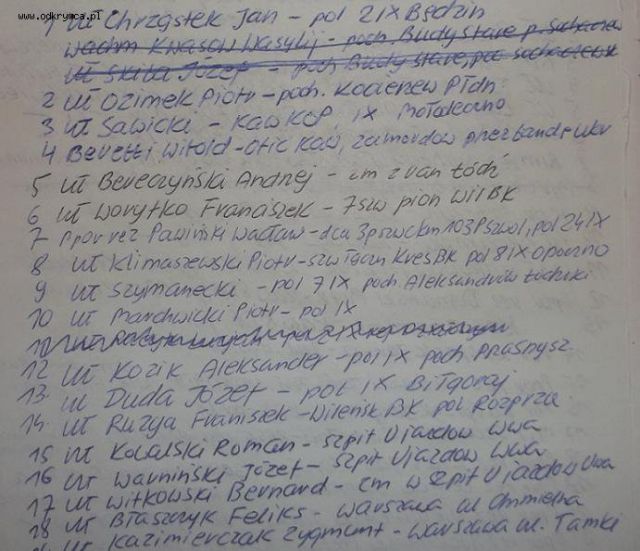 www.odkrywca.pl
1 uł Chrząstek Jan - pol 2 IX Będzin
wachm Kwasow Wasylij - poch. Budy Stare p. Sochaczew
uł Skiba Józef - poch Budy Stare, pow Sochaczewsk
2 uł Ozimek Piotr - poch. Kocierzew Płdn
3 uł Sawicki - Kaw KOP, IX Mołodeczno
4 Beretti Witold - ofic Kaw, zamordow przez bande Ukr
5 uł Bereczyński Andrzej - cm z ran Łódź
6 uł Worytko Franciszek - 7 szw pion Wil BK
7 ppor rez Pawiński Wacław - dca 3 pszwckm 103 Pszwol, pol 24 IX
8 uł Klimaszewski Piotr - szw łączn Kres BK pol 8 IX Opoczno
9 uł Szymanecki - pol 7 IX poch. Aleksandrów Łódzki
10 uł Marchwicki Piotr - pol IX
11 uł
12 uł Kozik Aleksander - pol IX poch Prasnysz
13. uł Duda Józef - pol IX Biłgoraj
14. uł Ruzga Franiszek - Wileńsk BK pol Rozprza
15 uł Kowalski Roman - szpit Ujazdów Wwa
16 uł Warmiński Józef - szpit Ujazdów Wwa
17 uł Witkowski Bernard - cm w szpit Ujazdów Wwa
18 uł Błaszczyk Feliks - Warszawa ul Chmielna
uł Kazimierczak Zygmunt - Warszawa ul. Tamki